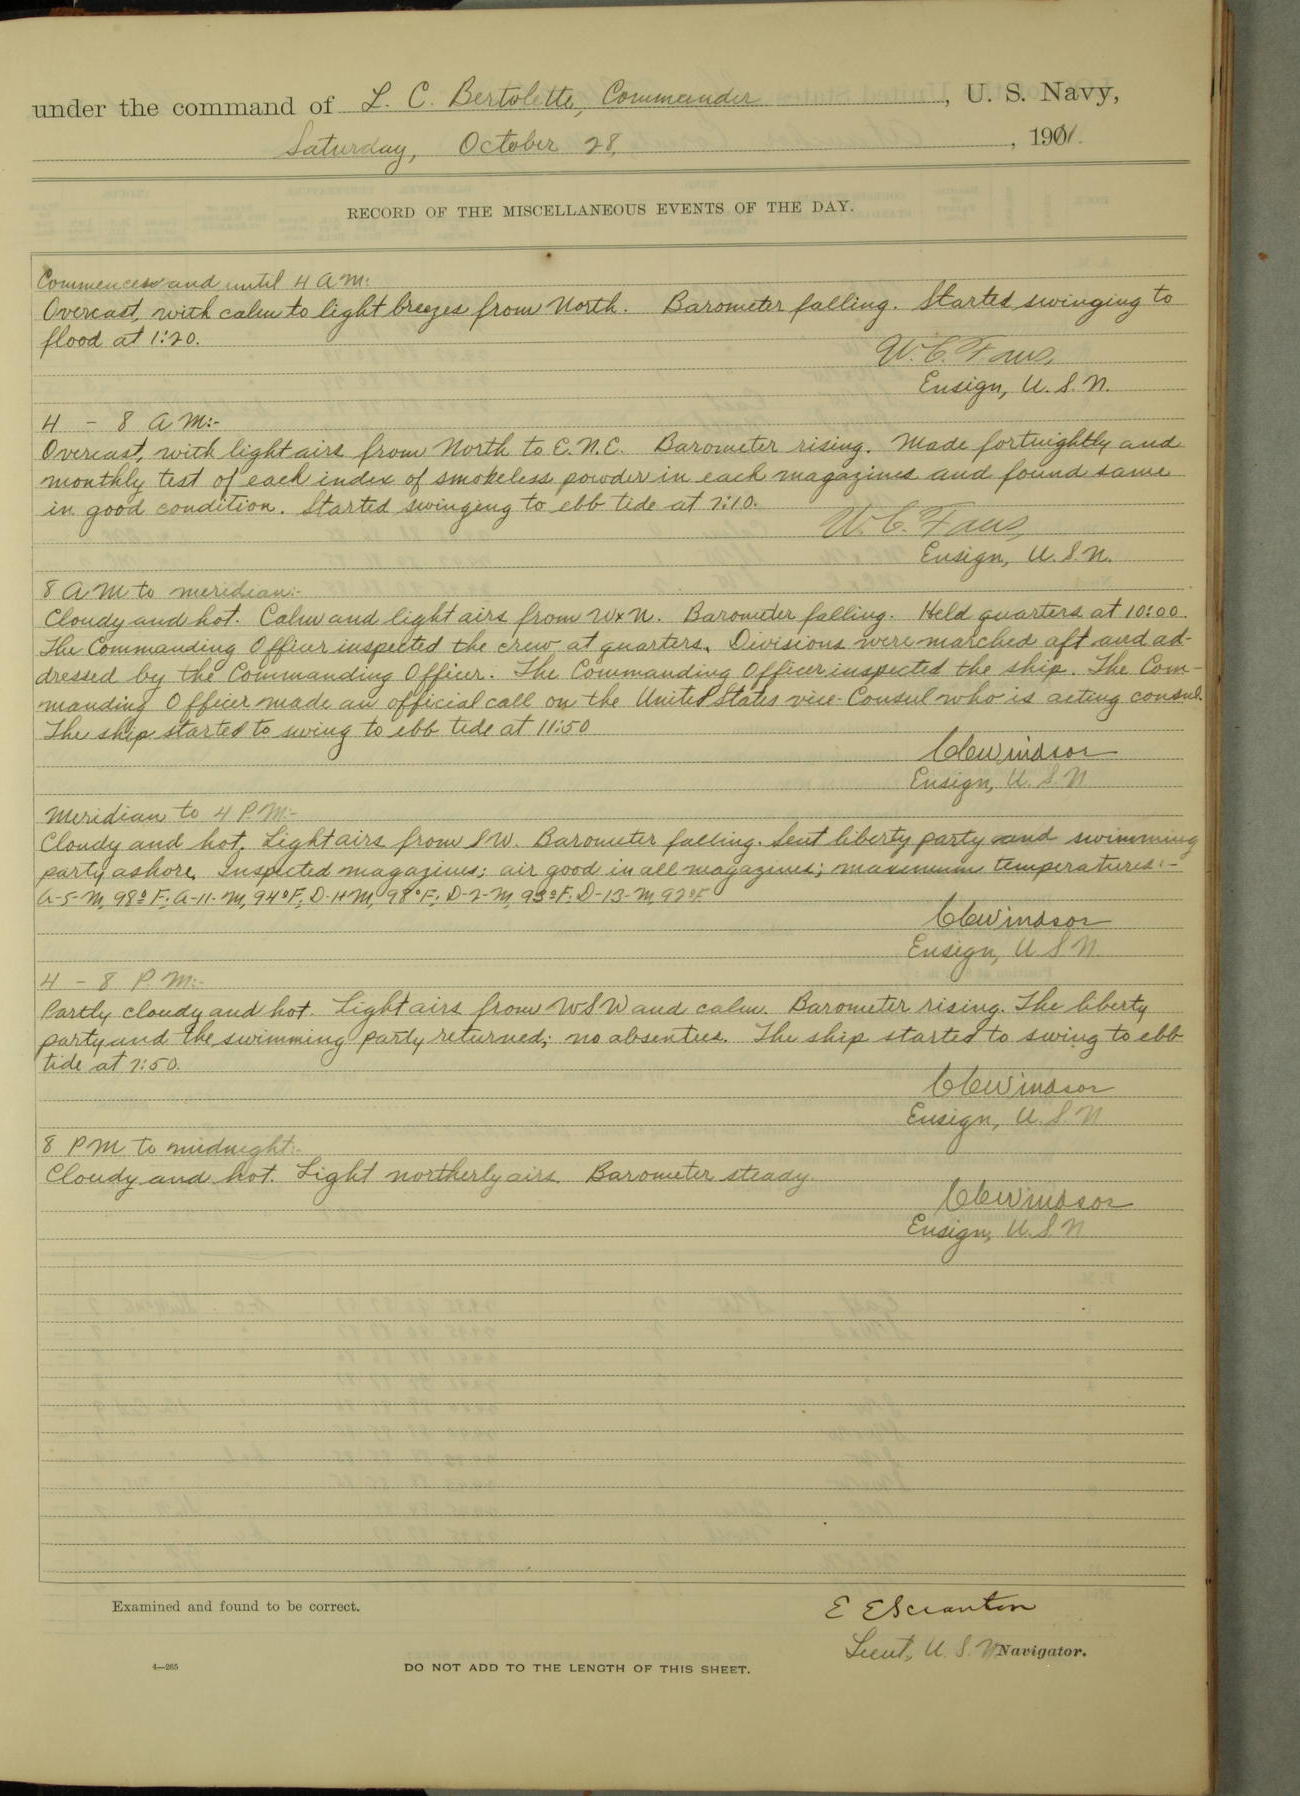 under the command of L. C. Bertolette, Commander, U. S. Navy,
Saturday, October 28, 1911.
RECORD OF THE MISCELLANEOUS EVENTS OF THE DAY.
Commences and until 4 A M:
Overcast, with calm to light breezes from North. Barometer falling. Started swinging to
flood at 1:20.
W. C. Faus,
Ensign, U. S. N.
4 - 8 A M:-
Overcast, with light airs from North to E.N.E. Barometer rising. Made fortnightly and
monthly test of each index of smokeless powder in each magazines and found same
in good condition. Started swinging to ebb tide at 7:10.
W. C. Faus,
Ensign, U. S. N.
8 A M to meridian:-
Cloudy and hot. Calm and light airs from WxN. Barometer falling. Held quarters at 10:00.
The Commanding Officer inspected the crew at quarters. Divisions were marched aft and ad-
dressed by the Commanding Officer. The Commanding Officer inspected the ship. The Com-
manding Officer made an official call on the United States vice-Consul who is acting consul.
The ship started to swing to ebb tide at 11:50
C C Windsor
Ensign, U. S. N
Meridian to 4 P.M:-
Cloudy and hot. Light airs from SW. Barometer falling. Sent liberty party and swimming
party ashore. Inspected magazines; air good in all magazines; maximum temperatures:-
A-5-M, 98° F; A-11-M, 94° F; D-1+M, 98° F; D-2-M, 93° F; D-13-M, 92° F.
C C Windsor
Ensign, U S N.
4 - 8 P. M:-
Partly cloudy and hot. Light airs from WSW and calm. Barometer rising. The liberty
party and the swimming party returned; no absentees. The ship started to swing to ebb
tide at 7:50.
C C Windsor
Ensign, U. S. N
8 P M to midnight:-
Cloudy and hot. Light northerly airs. Barometer steady.
C C Windsor
Ensign, U. S. N
Examined and found to be correct.
E E Scranton
Lieut, U. S. N Navigator.
4—265
DO NOT ADD TO THE LENGTH OF THIS SHEET.